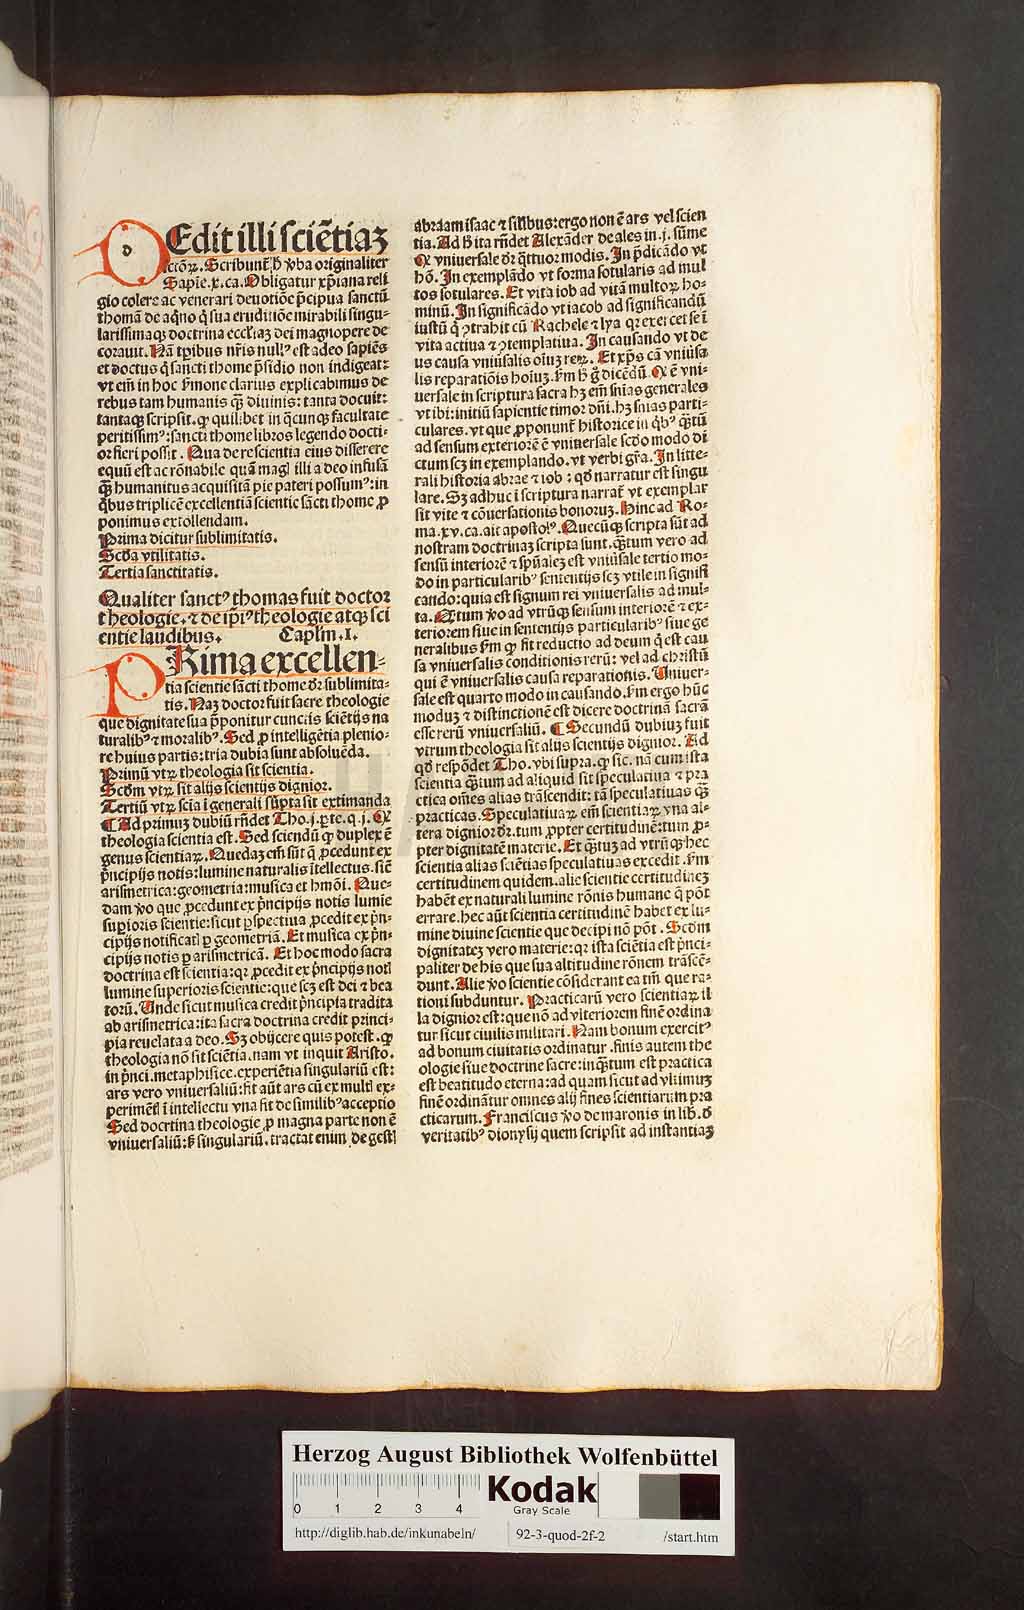 d
Edit illi sciētiaꝫ
sctōꝝ. Scribunt̄ h̄ v̄ba originaliter
Sapīe.x.ca. Obligatur xp̄iana reli
gio colere ac venerari deuotiōe p̄cipua sanctū
thomā de aq̄no q̄ sua eruditiōe mirabili singu⸗
larissimaqꝫ doctrina eccl̄iaꝫ dei magnopere de
corauit. Nā tp̄ibus nr̄is nullꝰ est adeo sapiēs
et doctus q̄ sancti thome p̄sidio non indigeat:
vt em̄ in hoc ẜmone clarius explicabimus de
rebus tam humanis qꝫ̄ diuinis: tanta docuit:
tantaqꝫ scripsit. ꝙ quilibet in q̄cunqꝫ facultate
peritissimꝰ: sancti thome libros legendo docti⸗
or fieri possit. Qua de re scientia eius disserere
equū est ac rōnabile quā magl illi a deo infusā
qꝫ̄ humanitus acquisitā pie pateri possumꝰ: in
q̄bus triplicē excellentiā scientie sācti thome ꝓ
ponimus extollendam.
Prima dicitur sublimitatis.
Scd̄a vtilitatis.
Tertia sanctitatis.
Qualiter sanctꝰ thomas fuit doctor
theologie. ⁊ de ip̄iꝰ theologie atqꝫ sci
entie laudibus. Caplm̄.I.
PRima excellen⸗
tia scientie sācti thome dr̄ sublimita⸗
tis. Naꝫ doctor fuit sacre theologie
que dignitate sua p̄ponitur cunctis sciētijs na
turalibꝰ ⁊ moralibꝰ. Sed ꝓ intelligētia plenio⸗
re huius partis: tria dubia sunt absoluēda.
Primū vtꝝ theologia sit scientia.
Scd̄m vtꝝ sit alijs scientijs dignior.
Tertiū vtꝝ scīa ī generali sūpta sit extimanda
¶ Ad primuꝫ dubiū rn̄det Tho.j.ꝑte.q.j. Q
theologia scientia est. Sed sciendū ꝙ duplex ē
genus scientiaꝝ. Quedaꝫ em̄ sūt q̄ ꝓcedunt ex
p̄ncipijs notis: lumine naturalis ītellectus. sic̄
arismetrica: geometria: musica et hmōi. Que⸗
dam v̄o que ꝓcedunt ex p̄ncipijs notis lumie
suꝑioris scientie: sicut ꝑspectiua ꝓcedit ex p̄n⸗
cipijs notificatl ꝑ geometriā. Et musica ex p̄n⸗
cipijs notis ꝑ arismetricā. Et hoc modo sacra
doctrina est scientia: qꝛ ꝓcedit ex p̄ncipijs notl
lumine superioris scientie: que scꝫ est dei ⁊ bea
torū. Unde sicut musica credit p̄ncipia tradita
ab arismetrica: ita sacra doctrina credit princi⸗
pia reuelata a deo. Sꝫ obijcere quis potest. ꝙ
theologia nō sit sciētia. nam vt inquit Aristo.
in p̄nci. metaphisice. experiētia singulariū est:
ars vero vniuersaliū: fit aūt ars cū ex multl ex⸗
perimētl ī intellectu vna fit de similibꝰ acceptio
Sed docrtina theologie ꝓ magna parte non ē
vniuersaliū: ẜ singulariū. tractat enim de gestl
abraam isaac ⁊ silībus: ergo non ē ars vel scien
tia. Ad h̄ ita rn̄det Alexāder de ales in.j. sūme
Q vniuersale dr̄ q̄ttuor modis. In p̄dicādo vt
hō. In exemplādo vt forma sotularis ad mul
tos sotulares. Et vita iob ad vitā multoꝝ ho⸗
minū. In significādo vt iacob ad significandū
iustū q̄ ꝯtrahit cū Rachele ⁊ lya qꝛ exercet se ī
vita actiua ⁊ ꝯtemplatiua. In causando vt de
us causa vniūsalis oīuꝫ reꝝ. Et xp̄s cā vniūsa
lis reparatiōis hoīuꝫ. ẜm h̄ g̊ dicēdū. Q ē vni⸗
uersale in scriptura sacra hꝫ em̄ sn̄ias generales
vt ibi: initiū sapientie timor dn̄i. hꝫ snīas parti⸗
culares. vt que ꝓponunt̄ historice in q̄bꝰ q̄tū
ad sensum exteriorē ē vniuersale scd̄o modo di
ctum scꝫ in exemplando. vt verbi gr̄a. In litte⸗
rali historia abrae ⁊ iob: qd̄ narratur est singu
lare. Sꝫ adhuc ī scriptura narrat̄ vt exemplar
sit vite ⁊ cōuersationis bonoruꝫ. Hinc ad Ro⸗
ma.xv.ca. ait apostolꝰ. Quecūqꝫ scripta sūt ad
nostram doctrinaꝫ scripta sunt. q̄tum vero ad
sensū interiorē ⁊ sp̄ūaleꝫ est vniūsale tertio mo⸗
do in particularibꝰ sententijs scꝫ vtile in signifi
cando: quia est signum rei vniuersalis ad mul⸗
ta. Q̄tum v̄o ad vtrūqꝫ sensum interiorē ⁊ ex⸗
teriorem siue in sententijs particularibꝰ siue ge
neralibus ẜm ꝙ fit reductio ad deum q̄ est cau
sa vniuersalis conditionis rerū: vel ad christū
qui ē vniuersalis causa reparationis. Uniuer⸗
sale est quarto modo in causando. ẜm ergo hūc
moduꝫ ⁊ distinctionē est dicere doctrinā sacrā
esse rerū vniuersaliū. ¶ Secundū dubiuꝫ fuit
vtrum theologia sit alijs scientijs dignior. Ad
qd̄ respōdet Tho. vbi supra. ꝙ sic. nā cum ista
scientia q̄tum ad aliquid sit speculatiua ⁊ pra
ctica om̄es alias trāscendit: tā speculatiuas qꝫ̄
practicas. Speculatiuaꝝ em̄ scientiaꝝ vna al⸗
tera dignior dr̄. tum ꝓpter certitudinē: tum ꝓ⸗
pter dignitatē materie. Et q̄tuꝫ ad vtrūqꝫ hec
scientia alias sciētias speculatiuas excedit. ẜm
certitudinem quidem. alie scientie certitudineꝫ
habēt ex naturali lumine rōnis humane q̄ pōt
errare. hec aūt scientia certitudinē habet ex lu⸗
mine diuine scientie que decipi nō pōt. Scd̄m
dignitateꝫ vero materie: qꝛ ista sciētia est p̄nci⸗
paliter de his que sua altitudine rōnem trāscē⸗
dunt. Alie v̄o scientie cōsiderant ea tm̄ que ra⸗
tioni subduntur. Practicarū vero scientiaꝝ il
la dignior est: que nō ad vlteriorem finē ordina
tur sicut ciuilis militari. Nam bonum exercitꝰ
ad bonum ciuitatis ordinatur. finis autem the
ologie siue doctrine sacre: inq̄tum est practica
est beatitudo eterna: ad quam sicut ad vltimuꝫ
finē ordinātur omnes alij fines scientiarum pra
cticarum. Franciscus v̄o de maronis in lib. d̄
veritatibꝰ dionysij quem scripsit ad instantiaꝫ
Herzog August Bibliothek Wolfenbüttel
0 1 2 3 4
Kodak
Gray Scale
http://diglib.hab.de/inkunabeln/ 92-3-quod-2f-2 /start.htm